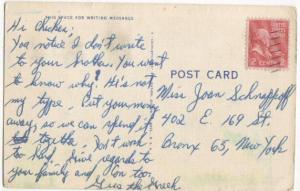 THIS SPACE FOR WRITING MESSAGES
Hi Chicken,
You notice I don't write
to your brother. You want
to know why? He's not
my type. Put your money
away, so we can spend it
together. Don't work
to hard. Give regards to
your family and, on too.
Gus the Greek
POST CARD
Miss Joan Schnappoff
402 E. 169 St.
Bronx 65, New York
2 CENTS 2